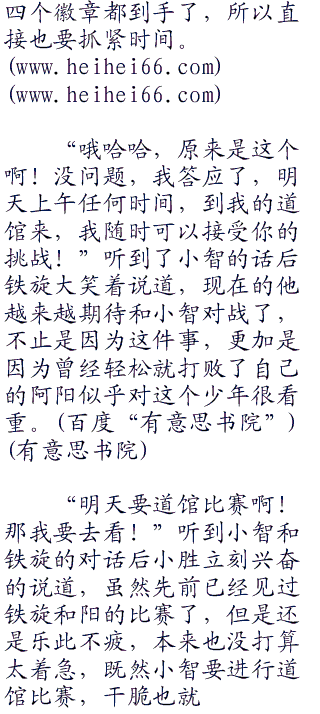 四个徽章都到手了，所以直
接也要抓紧时间。
(www.heihei66.com)
(www.heihei66.com)
“哦哈哈，原来是这个
啊！没问题，我答应了，明
天上午任何时间，到我的道
馆来，我随时可以接受你的
挑战！”听到了小智的话后
铁旋大笑着说道，现在的他
越来越期待和小智对战了，
不止是因为这件事，更加是
因为曾经轻松就打败了自己
的阿阳似乎对这个少年很看
重。(百度“有意思书院”)
(有意思书院)
“明天要道馆比赛啊！
那我要去看！”听到小智和
铁旋的对话后小胜立刻兴奋
的说道，虽然先前已经见过
铁旋和阳的比赛了，但是还
是乐此不疲，本来也没打算
太着急，既然小智要进行道
馆比赛，干脆也就